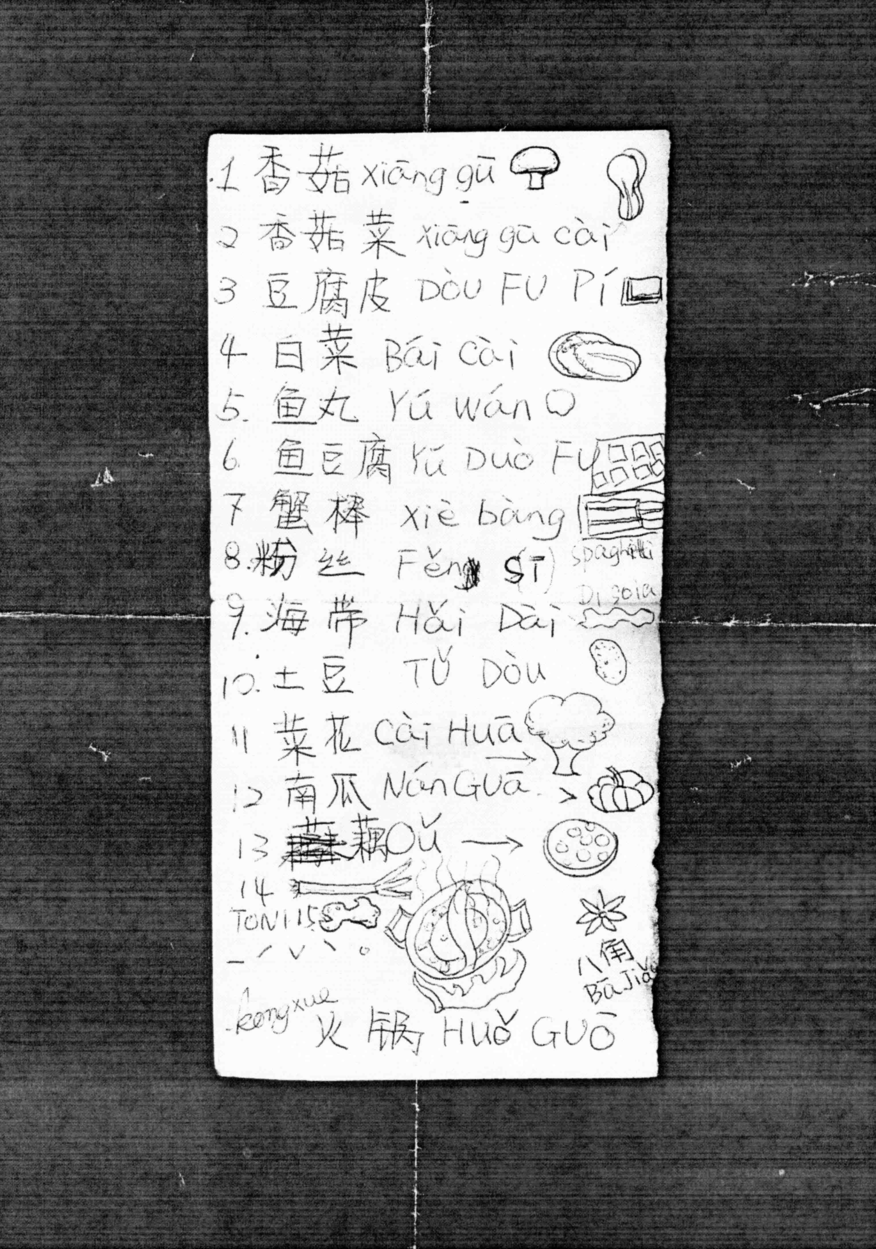 1 香菇 xiāng gū
2 香菇菜 xiāng gū cài
3 豆腐皮 DÒU FU PÍ
4 白菜 Bái cài
5. 鱼丸 Yú wán
6 鱼豆腐 Yú Duò FU
7 蟹棒 xiè bàng
8. 粉丝 Fěn (sī) spaghetti
Di soia
9. 海带 Hǎi Dài
10. 土豆 TǓ DÒU
11 菜花 Cài Huā →
12 南瓜 Nán GUā. >
13 藕 Oǔ →
14
TONI 15
— ˊ ˇ ˋ 。
八角
Bā Jiǎo
kong xue
火锅 Huǒ GUŌ